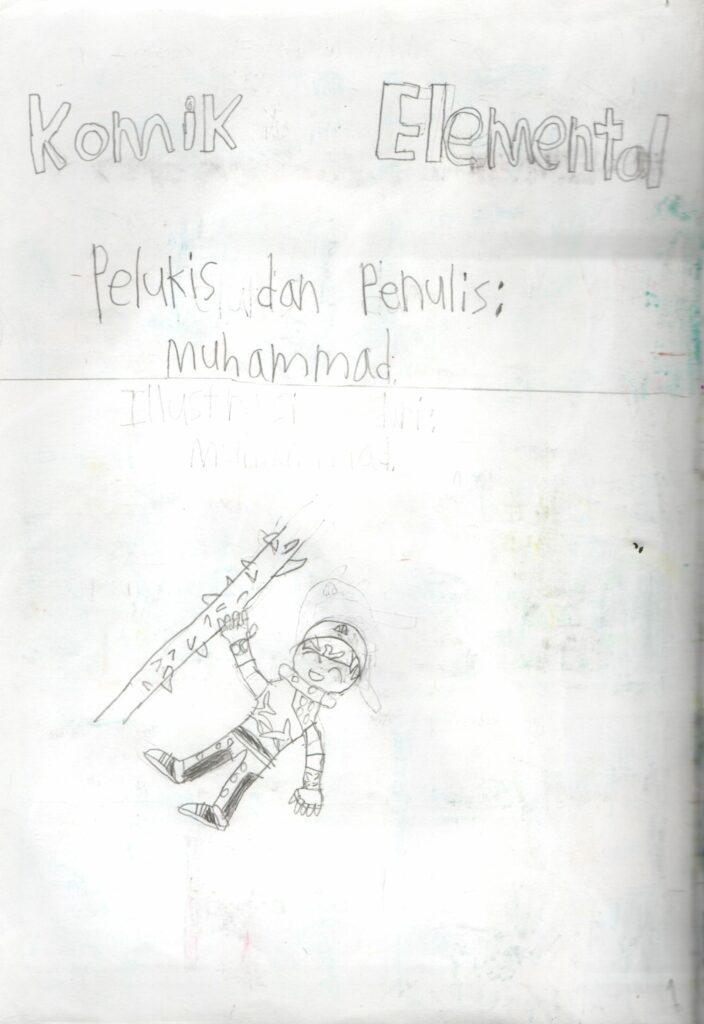 Komik Elemental
Pelukis dan Penulis:
Muhammad.
Illustrasi diri:
Muhammad.
1